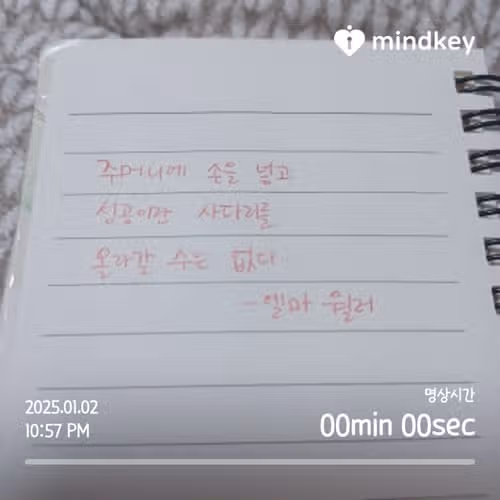 mindkey
주머니에 손을 넣고
성공이란 사다리를
올라갈 수는 없다
- 엘마 윌러
명상시간
2025.01.02
10:57 PM
00min 00sec